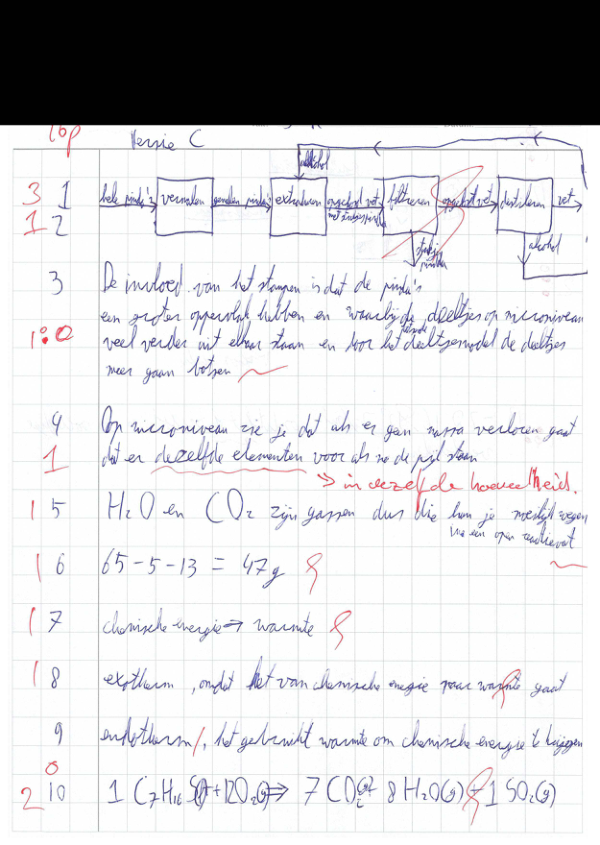 16p Versie C
alcohol
3 1 hele pinda's vermalen gemalen pinda's extraheren opgelost vet filtreren opgelost vet destilleren vet
1 2 met stukjes pinda
stukjes pinda alcohol
3 De invloed van het stampen is dat de pinda's
een groter oppervlak hebben en waarbij de deeltjes op microniveau
1:0 veel verder uit elkaar staan en door het deeltjesmodel de deeltjes
meer gaan botsen
4 Op microniveau zie je dat als er geen massa verloren gaat
1 dat er dezelfde elementen voor als na de pijl staan
→ in dezelfde hoeveelheid.
1 5 H₂O en CO₂ zijn gassen dus die kun je moeilijk wegen
via een open
1 6 65-5-13 = 47g
1 7 chemische energie → warmte
1 8 exotherm, omdat het van chemische energie naar warmte gaat
9 endotherm, het gebruikt warmte om chemische energie te krijgen
0
2 10 1 C₇H₁₆S(l)+12O₂(g) ⇒ 7 CO₂(g)+ 8 H₂O(g) + 1 SO₂(g)